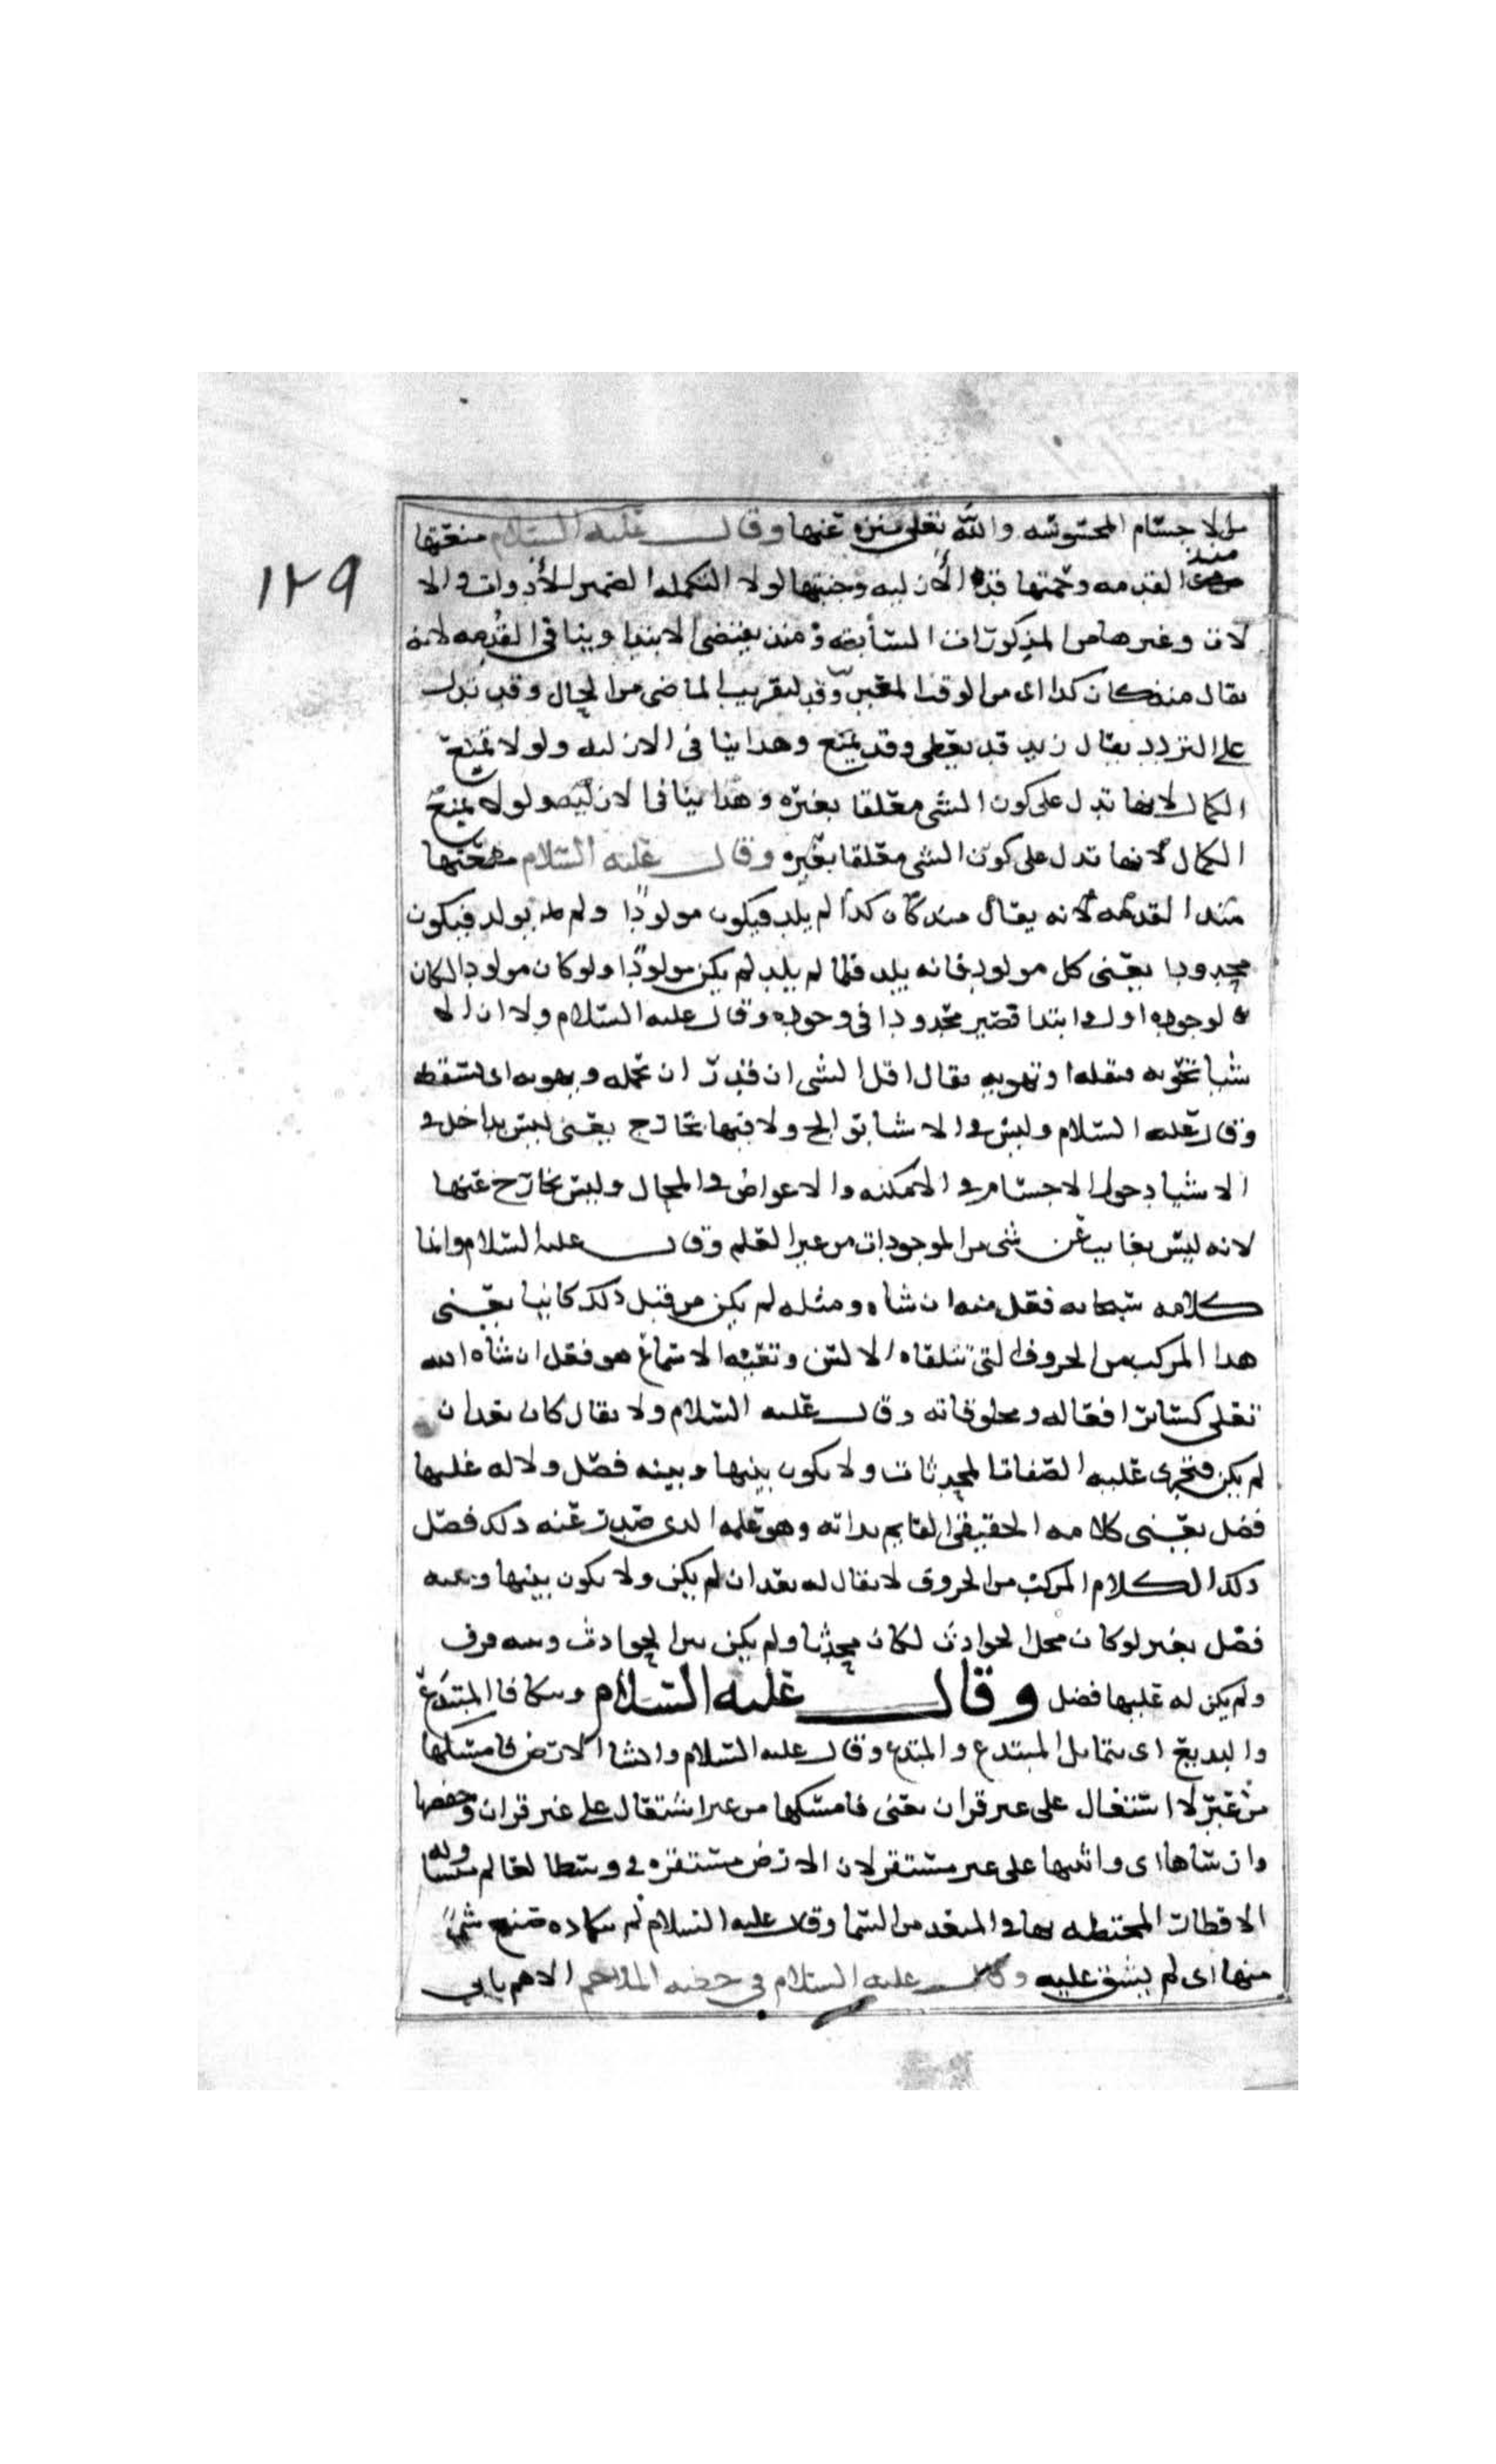 من الاجسام المحسوسه والله تعلى منزه عنها وقال عليه السلام منعتها
منذ القدمه وحمتها قد الأزليه وجنبتها لولا التكمله الضمير للأدوات والا
لات وغيرها من المذكورات السابقه ومنذ يقتضي الابتدا وينافي القدمه لانه
يقال منذ كان كذا اى من الوقت المعين وقد لتقريب الماضى من الحال وقد تدل
على التردد يقال زيد قد يعطى وقد يمنع وهذا ينافى الازليه ولولا تمنع
الكمال لانها تدل على كون الشى معلقا بغيره وهذا ينافى الازليه ولولا يمنع
الكمال لانها تدل على كون الشى معلقا بغيره وقال عليه السلام منعتها
منذ القدمه لانه يقال منذ كان كذا لم يلد فيكون مولودًا ولم يولد فيكون
محدودا يعنى كل مولود فانه يلد فلما لم يلد لم يكن مولودًا ولو كان مولودا لكان
لوجوده اول وابتدا فصير محدودا في وجوده وقال عليه السلام ولا ان الا
شيا تحويه فتقله او تهويه يقال اقل الشى ان قدر ان يحمله ويهويه اى يسقطه
وقال عليه السلام وليس في الاشيا بوالج ولا فيها بخارج يعنى ليس بداخل في
الاشيا دخول الاجسام في الامكنه والاعراض في المحال وليس بخارج عنها
لانه ليس بغايب عن شى من الموجودات من غير العلم وقال عليه السلام وانما
كلامه سبحانه فعل منه انشاه ومثله لم يكن من قبل ذلك كاينا يعنى
هذا المركب من الحروف التى تتلقاه الالسن وتعيه الاسماع هو فعل انشاه الله
تعلى كسائر افعاله ومخلوقاته وقال عليه السلام ولا يقال كان بعد ان
لم يكن فتجرى عليه الصفات المحدثات ولا يكون بينها وبينه فصل ولا له عليها
فضل يعنى كلامه الحقيقى القايم بذاته وهو علمه الذى صدر عنه ذلك فصل
ذلك الكلام المركب من الحروف لا يقال له بعد ان لم يكن ولا يكون بينها وبينه
فصل بغير لو كان محل الحوادث لكان محدثا ولم يكن بين الحوادث وبينه فرق
ولم يكن له عليها فضل وقال عليه السلام ويتكافا المبتدع
والبديع اى يتماثل المبتدع والمبتدع وقال عليه السلام وانشا الارض فامسكها
من غير لا اشتغال على غير قران يعنى فامسكها من غير اشتغال على غير قران وحفصها
وارساها اى واثبتها على غير مستقر لان الارض مستقره في وسط العالم
الاقطار المحتطه بها في البعد من السما وقال عليه السلام لم يتكاده صنع شىٍ
منها اى لم يشق عليه وقال عليه السلام في خطبه الملاحم الا هم بابى
١٢٩